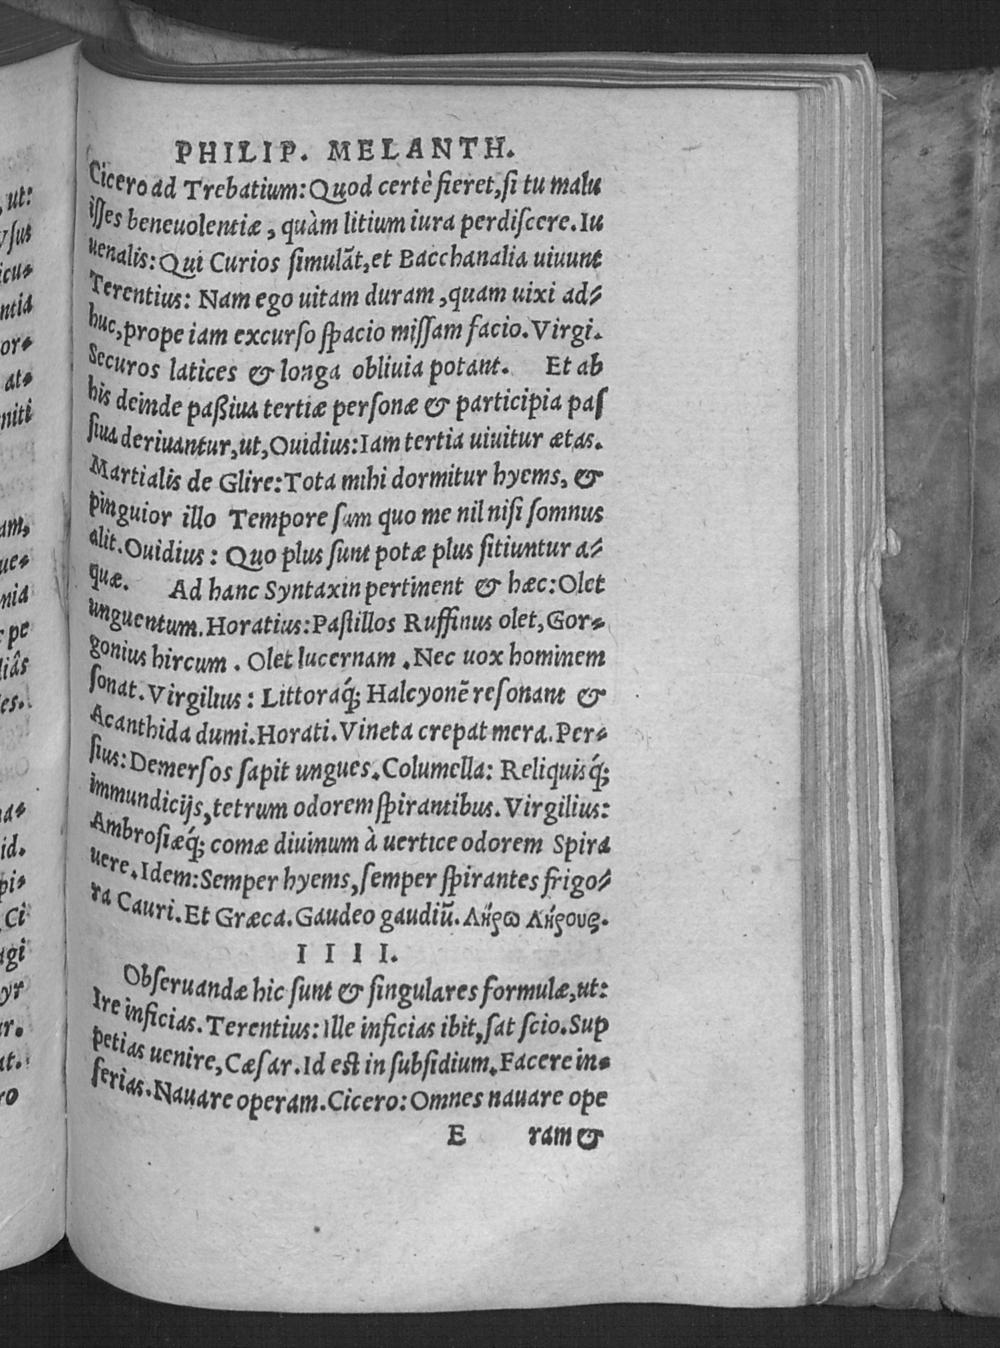 PHILIP. MELANTH.
Cicero ad Trebatium: Quod certè fieret, ſi tu malu
iſſes beneuolentiæ, quàm litium iura perdiſcere. Iu
uenalis: Qui Curios ſimulãt, et Bacchanalia uiuunt
Terentius: Nam ego uitam duram, quam uixi ad-
huc, prope iam excurſo ſpacio miſſam facio. Virgi.
Securos latices & longa obliuia potant. Et ab
his deinde paßiua tertiæ perſonæ & participia paſ
ſiua deriuantur, ut, Ouidius: Iam tertia uiuitur ætas.
Martialis de Glire: Tota mihi dormitur hyems, &
pinguior illo Tempore ſum quo me nil niſi ſomnus
alit. Ouidius: Quo plus ſunt potæ plus ſitiuntur a-
quæ. Ad hanc Syntaxin pertinent & hæc: Olet
unguentum. Horatius: Paſtillos Ruffinus olet, Gor-
gonius hircum. Olet lucernam. Nec uox hominem
ſonat. Virgilius: Littoraq́; Halcyonẽ reſonant &
Acanthida dumi. Horati. Vineta crepat mera. Per-
ſius: Demerſos ſapit ungues. Columella: Reliquisq́;
immundicijs, tetrum odorem ſpirantibus. Virgilius:
Ambroſiæq́; comæ diuinum à uertice odorem Spira
uere. Idem: Semper hyems, ſemper ſpirantes frigo-
ra Cauri. Et Græca. Gaudeo gaudiũ. Λήρω Λήρους.
I I I I.
Obſeruandæ hic ſunt & ſingulares formulæ, ut:
Ire inficias. Terentius: Ille inficias ibit, ſat ſcio. Sup
petias uenire, Cæſar. Id eſt in ſubſidium. Facere in-
ſerias. Nauare operam. Cicero: Omnes nauare ope
E ram &